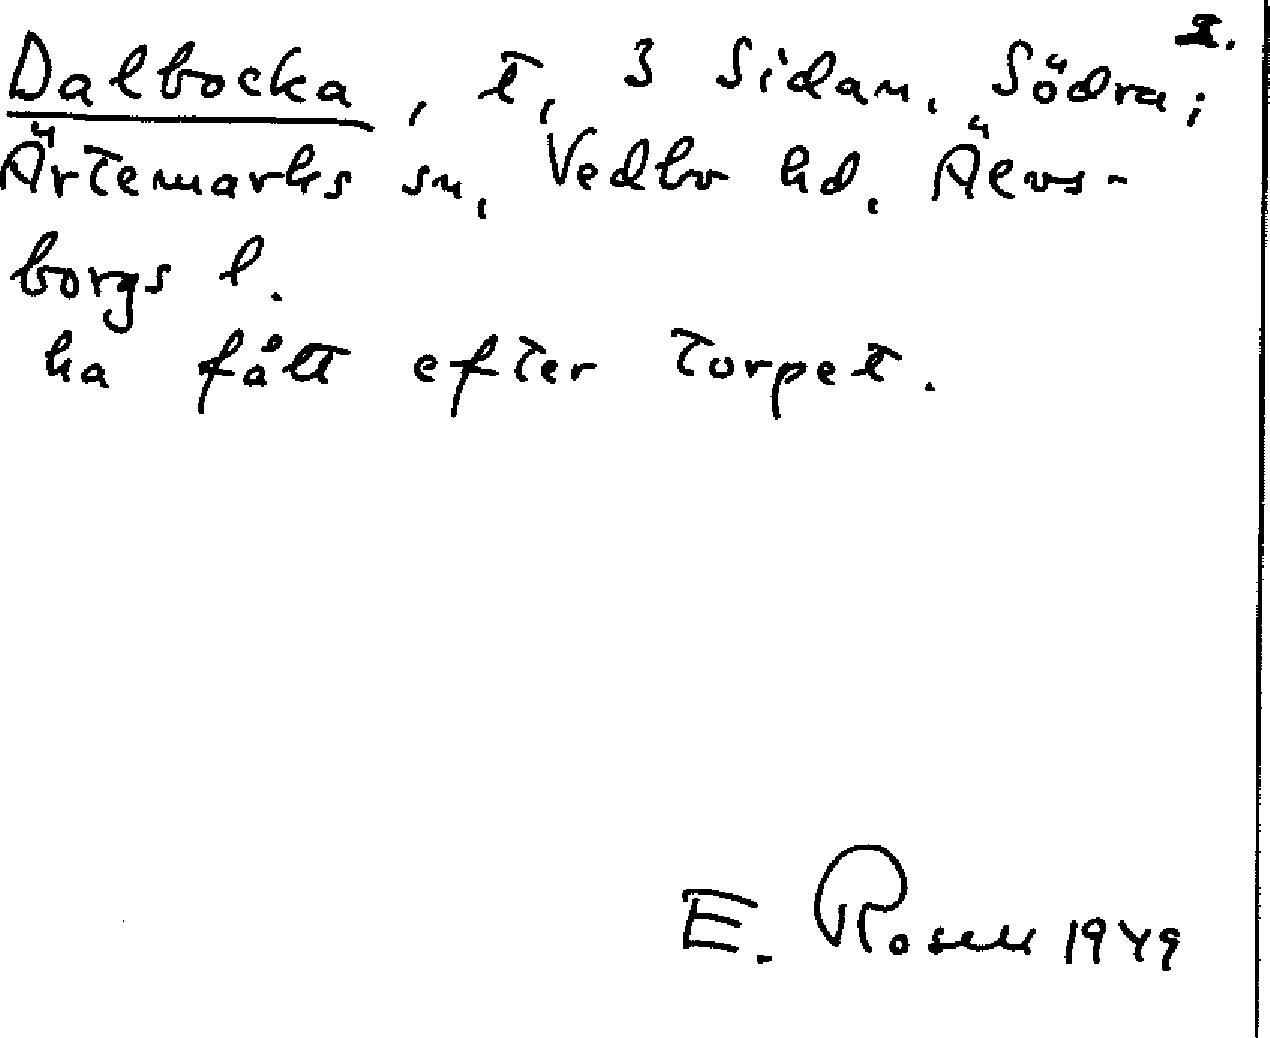 2.
Dalbocka, t, 3 Sidan, Södra;
Ärtemarks sn, Vedbo hd, Älvs-
borgs l.
ha fått efter torpet.
E. Rosell 1949